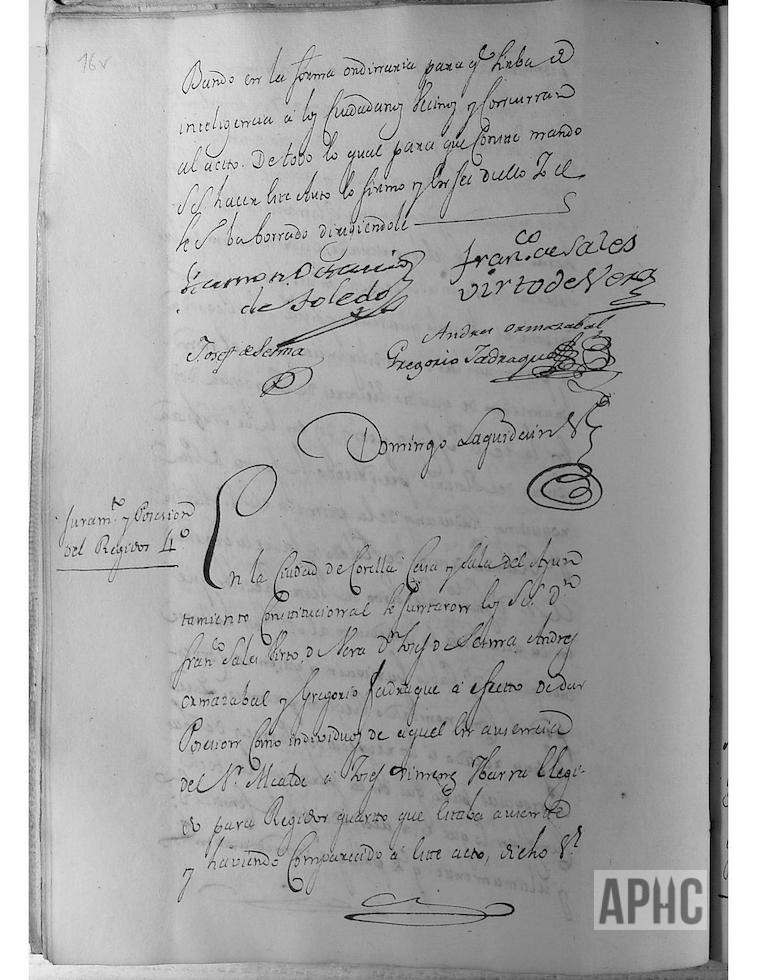 16v
Bando en la forma ordinaria para q.e sirba de
inteligencia á los Ciudadanos Vecinos y Concurran
al acto. De todo lo qual para que Conste mando
S.S. hacer este Auto lo firmo y en fee de ello Yo el
se S. ba borrado dirigiendole
Ramon Octavio
de Toledo
Fran.co de Sales
Virto de Vera
Josef de Sesma
Andres Ormazabal
Gregorio Jadraque
Domingo Laquidain
Juram.to y Posesion
del Regidor 4.º
En la Ciudad de Corella Casa y Sala del Ayun
tamiento Constitucional se Juntaron los SS. D.n
Fran.co Sales Virto, de Vera D.n Josef de Sesma Andres
Ormazabal y Gregorio Jadraque á efecto de dar
Posesion Como individuos de aquel en ausencia
del S.r Alcalde á Josef Ximenez Ybarra Elegi-
do para Regidor quarto que estaba ausente
y haviendo Comparecido á este acto, dicho S.r
APHC